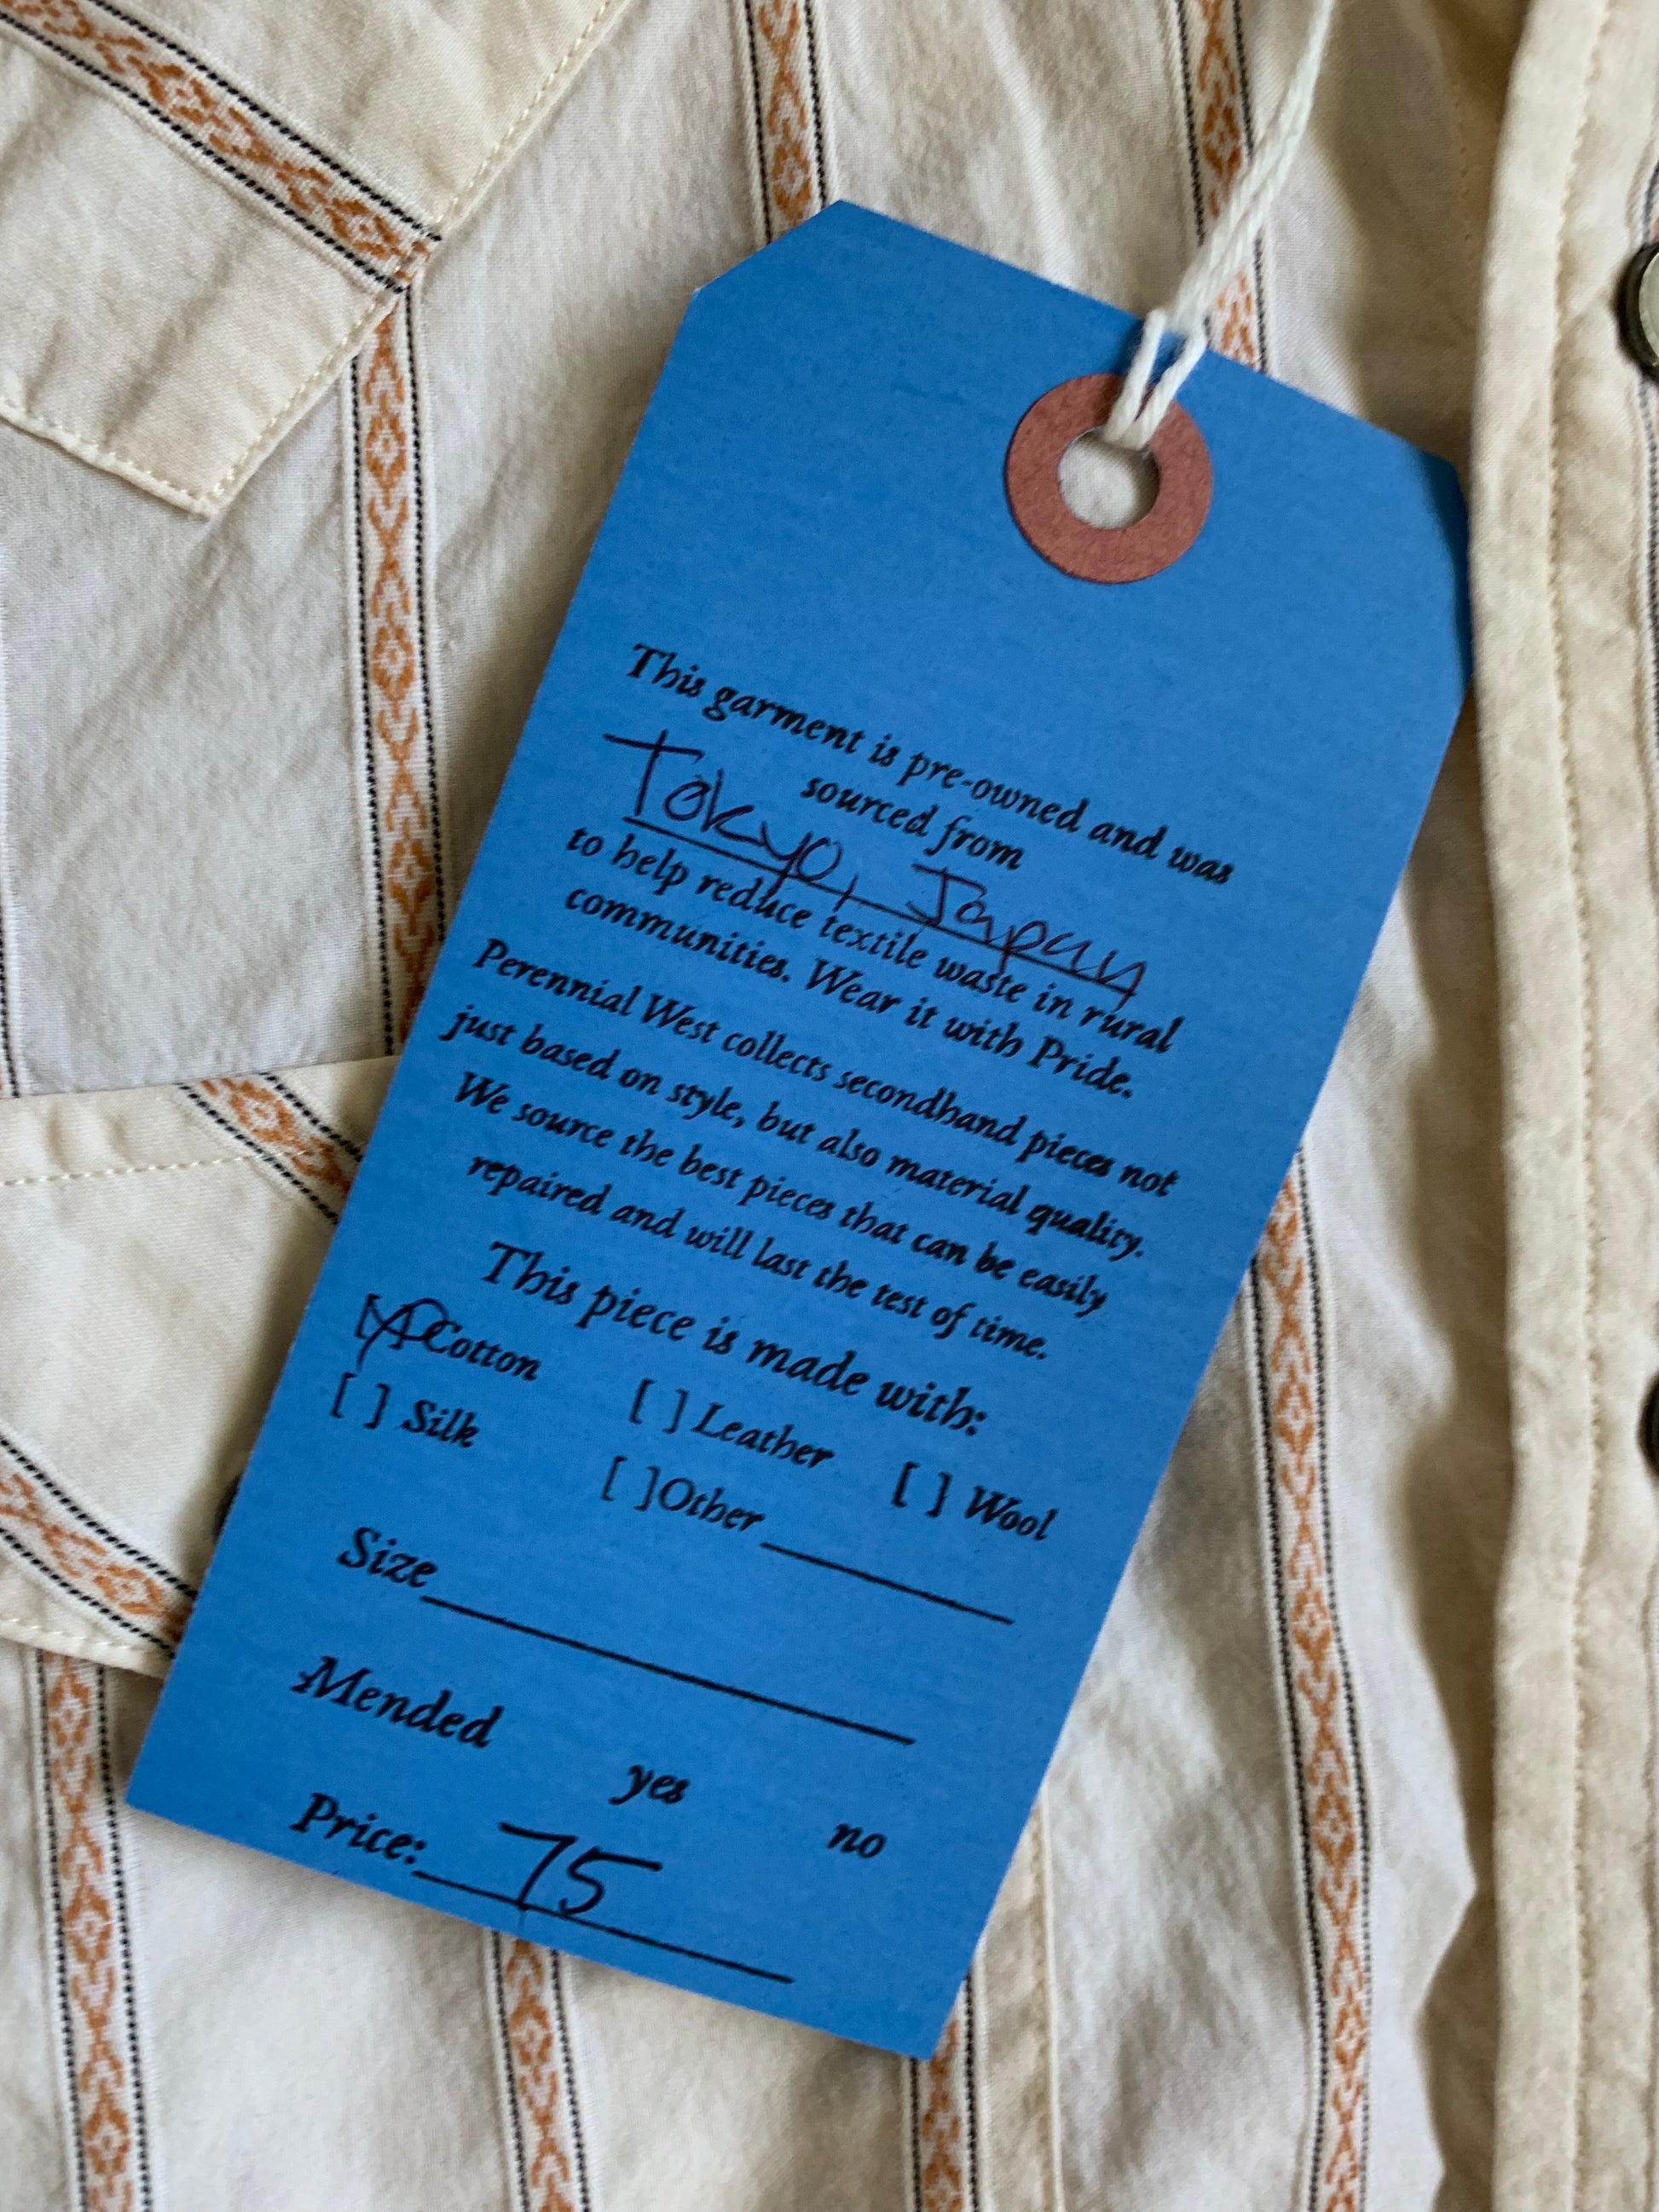 This garment is pre-owned and was
sourced from
Tokyo, Japan
to help reduce textile waste in rural
communities. Wear it with Pride.
Perennial West collects secondhand pieces not
just based on style, but also material quality.
We source the best pieces that can be easily
repaired and will last the test of time.
This piece is made with:
[X] Cotton [ ] Leather [ ] Wool
[ ] Silk [ ] Other ________
Size ________
Mended yes no
Price: 75